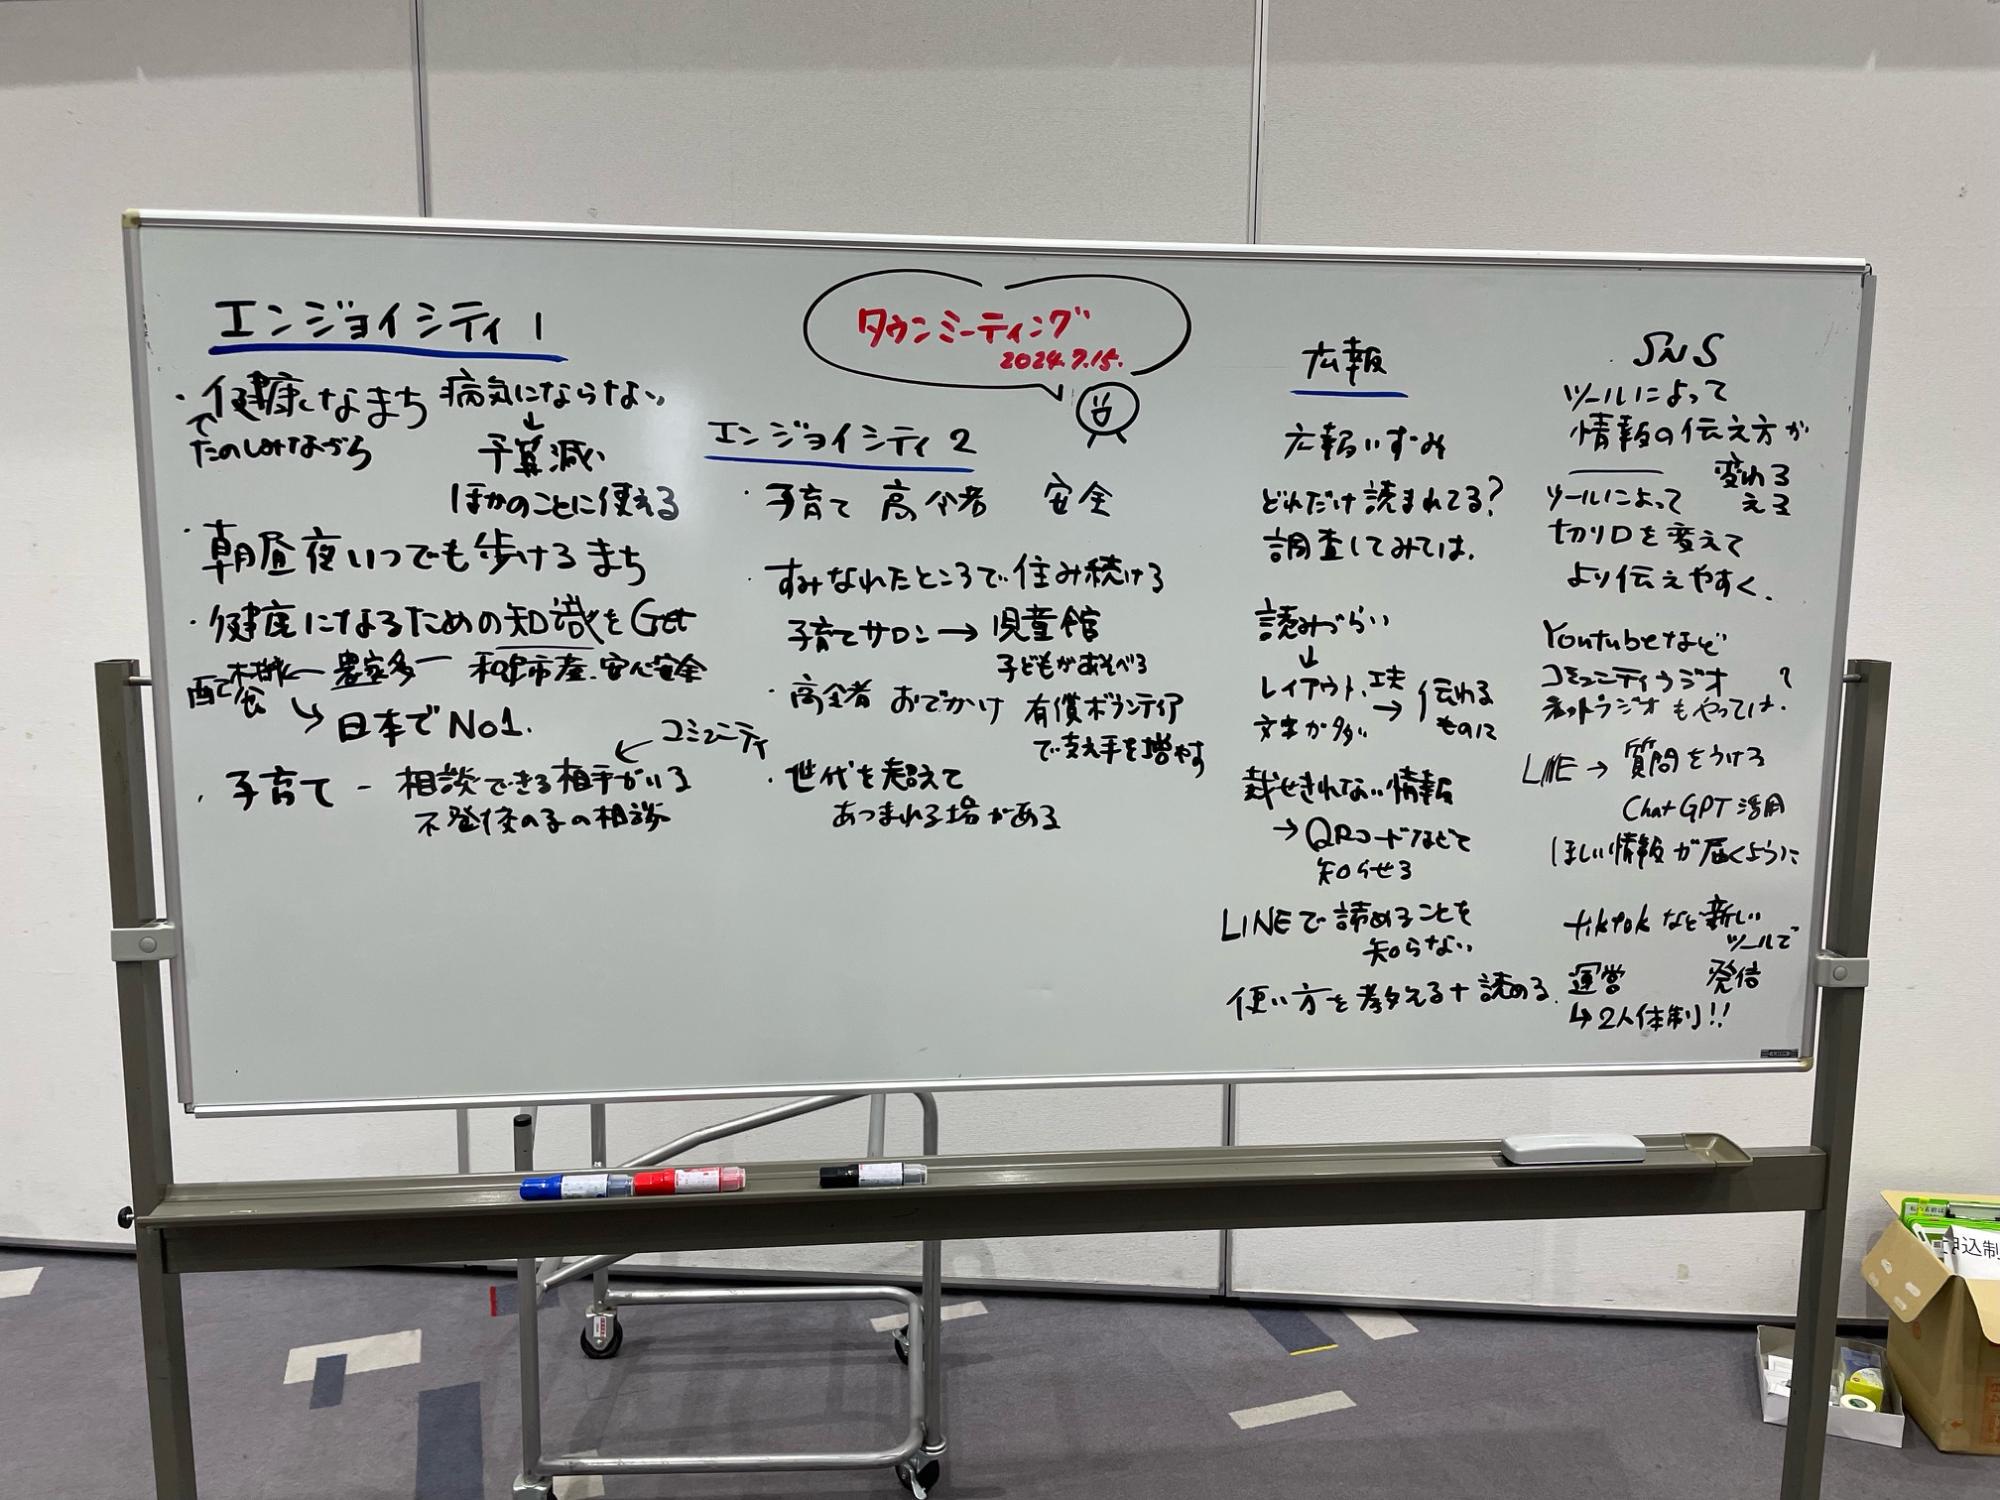 タウンミーティング
2024.7.15.
エンジョイシティ 1
・健康なまち 病気にならない
たのしみながら
↓
予算減
ほかのことに使える
・朝昼夜いつでも歩けるまち
・健康になるための知識をGet
農家多 和泉市産.安心安全
日本でNo1.
コミュニティ
・子育て - 相談できる相手がいる
不登校の子の相談
エンジョイシティ 2
・子育て 高令者 安全
・すみなれたところで住み続ける
子育てサロン→児童館
子どもがあそべる
・高令者 おでかけ 有償ボランティア
で支え手を増やす
・世代を超えて
あつまれる場がある
広報
広報いずみ
どれだけ読まれてる?
調査してみては.
読みづらい
↓
レイアウト、工夫
文字が多い → 伝わる
ものに
載せきれない情報
→QRコードなどで
知らせる
LINEで読めることを
知らない
使い方を教える+読める.
SNS
ツールによって
情報の伝え方が
変わる
える
ツールによって
切り口を変えて
より伝えやすく.
Youtubeなど
コミュニティラジオ
ネットラジオもやっては.?
LINE → 質問をうける
ChatGPT活用
ほしい情報が届くように
tiktokなど新しい
ツールで
発信
運営
↳2人体制!!
申込制